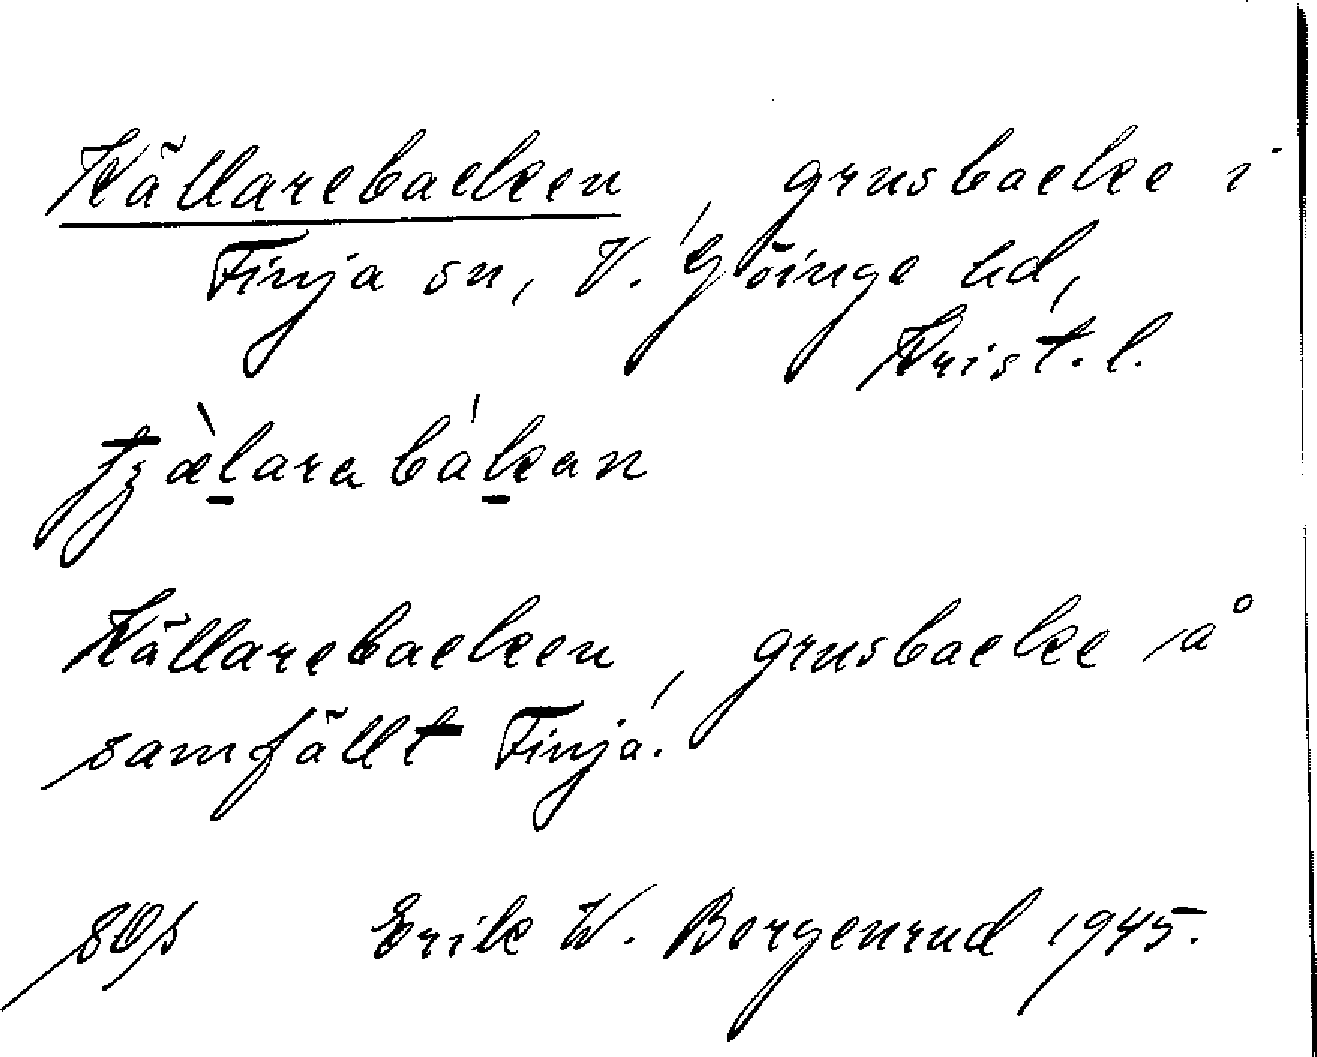 Källarebacken, grusbacke i
Finja sn, V. Göinge hd,
Krist. l.
Källarebacken, grusbacke å
samfällt Finja.
Erik W. Bergenrud 1945.